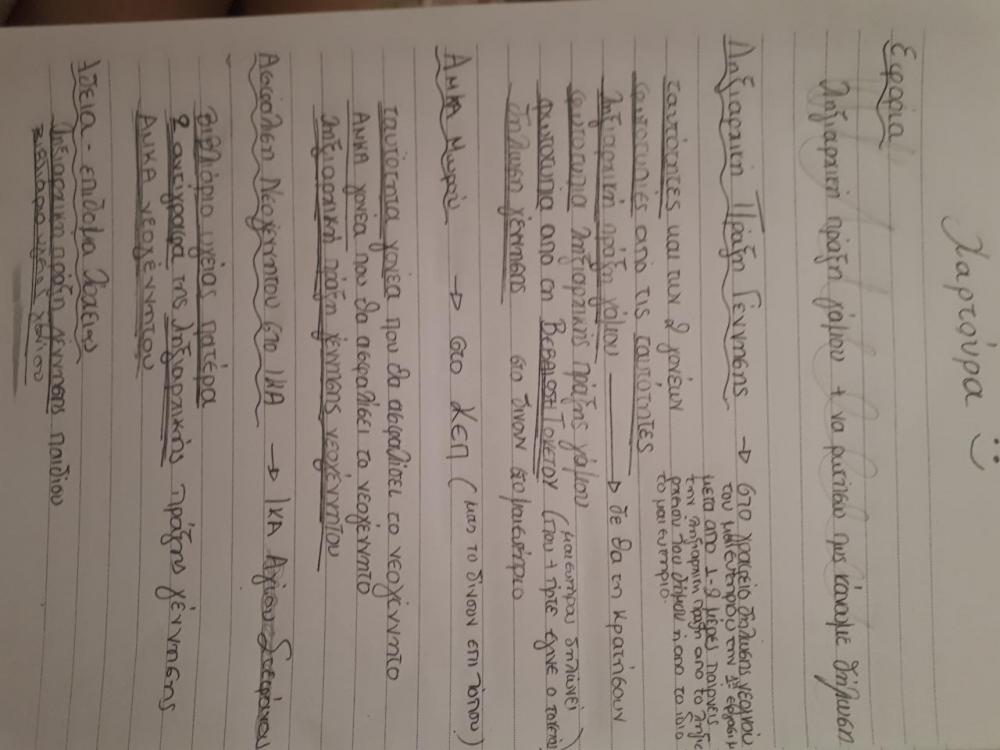 Χαρτούρα :)
Εφορία
Ληξιαρχική πράξη γάμου + να ρωτήσω πως κάνουμε δήλωση
Ληξιαρχική Πράξη Γέννησης → στο γραφείο δήλωσης νεογνού
του μαιευτηρίου την 1η εργάσιμ
μετά από 1-2 μέρες παίρνεις
την ληξιαρχική πράξη από το ληξι
αρχείου του δήμου ή από το ίδιο
το μαιευτήριο.
ταυτότητες και των 2 γονέων
φωτοτυπίες από τις ταυτότητες
Ληξιαρχική πράξη γάμου → δε θα τη κρατήσουν
φωτοτυπία ληξιαρχικής πράξης γάμου
φωτοτυπία από τη Βεβαίωση Τοκετού (μαιευτηρίου δηλώνει
που + πότε έγινε ο τοκετός)
δήλωση γέννησης στο δίνουν στο μαιευτήριο
ΑΜΚΑ Μωρού → στο ΚΕΠ (μας το δίνουν επί τόπου)
ταυτότητα γονέα που θα ασφαλίσει το νεογέννητο
ΑΜΚΑ γονέα που θα ασφαλίσει το νεογέννητο
ληξιαρχική πράξη γέννησης νεογέννητου
Ασφάλιση Νεογέννητου στο ΙΚΑ → ΙΚΑ Αγίου Στεφάνου
βιβλιάριο υγείας πατέρα
2 αντίγραφα της ληξιαρχικής πράξης γέννησης
ΑΜΚΑ νεογέννητου
Άδεια - επίδομα λοχείας
ληξιαρχική πράξη γέννησης παιδιού